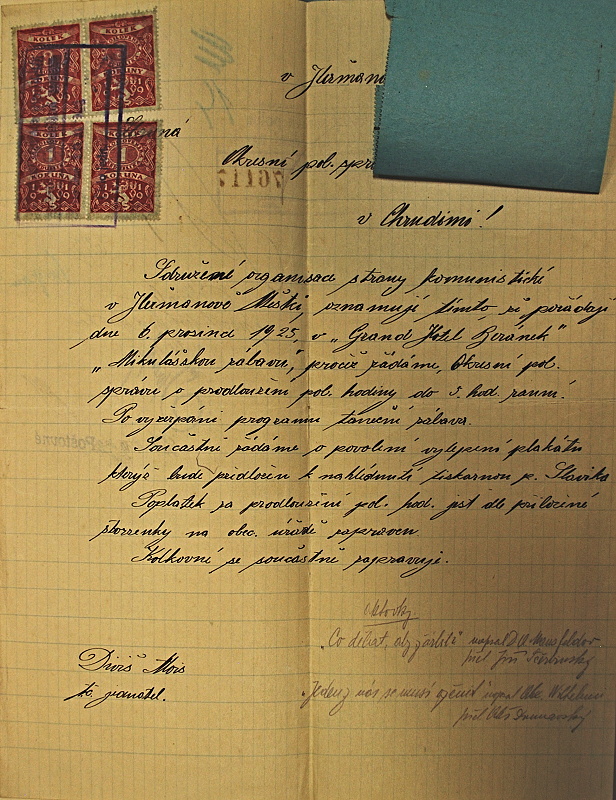 KOLEK KOLEK
KORUNY KORUNY
KOLEK KOLEK
1 1
KORUNA KORUNA
v Heřman
Slavná
Okresní pol. spr
76117
v Chrudimi!
Sdružené organisace strany komunistické
v Heřmanově Městci, oznamují tímto že pořádají
dne 6. prosince 1925, v „Grand Hotel Beránek"
„Mikulášskou zábavu", pročež žádáme, Okresní pol.
správu o prodloužení pol. hodiny do 5. hod. ranní.
Po vyčerpání programu taneční zábava.
Součastně žádáme o povolení vylepení plakátů
kterýž bude předložen k nahlédnutí tiskárnou p. Slavíka
Poplatek za prodloužení pol. hod. jest dle přiložené
stvrzenky na obec. úřadě zapraven.
Kolkovní se součastně zapravuje.
Aktovky.
„Co dělat, aby žárlil" napsal
přel. Jiří
Diviš Alois
t. č. jednatel.
„Jeden z nás se musí oženit" napsal Alex. Wilhelm
přel.